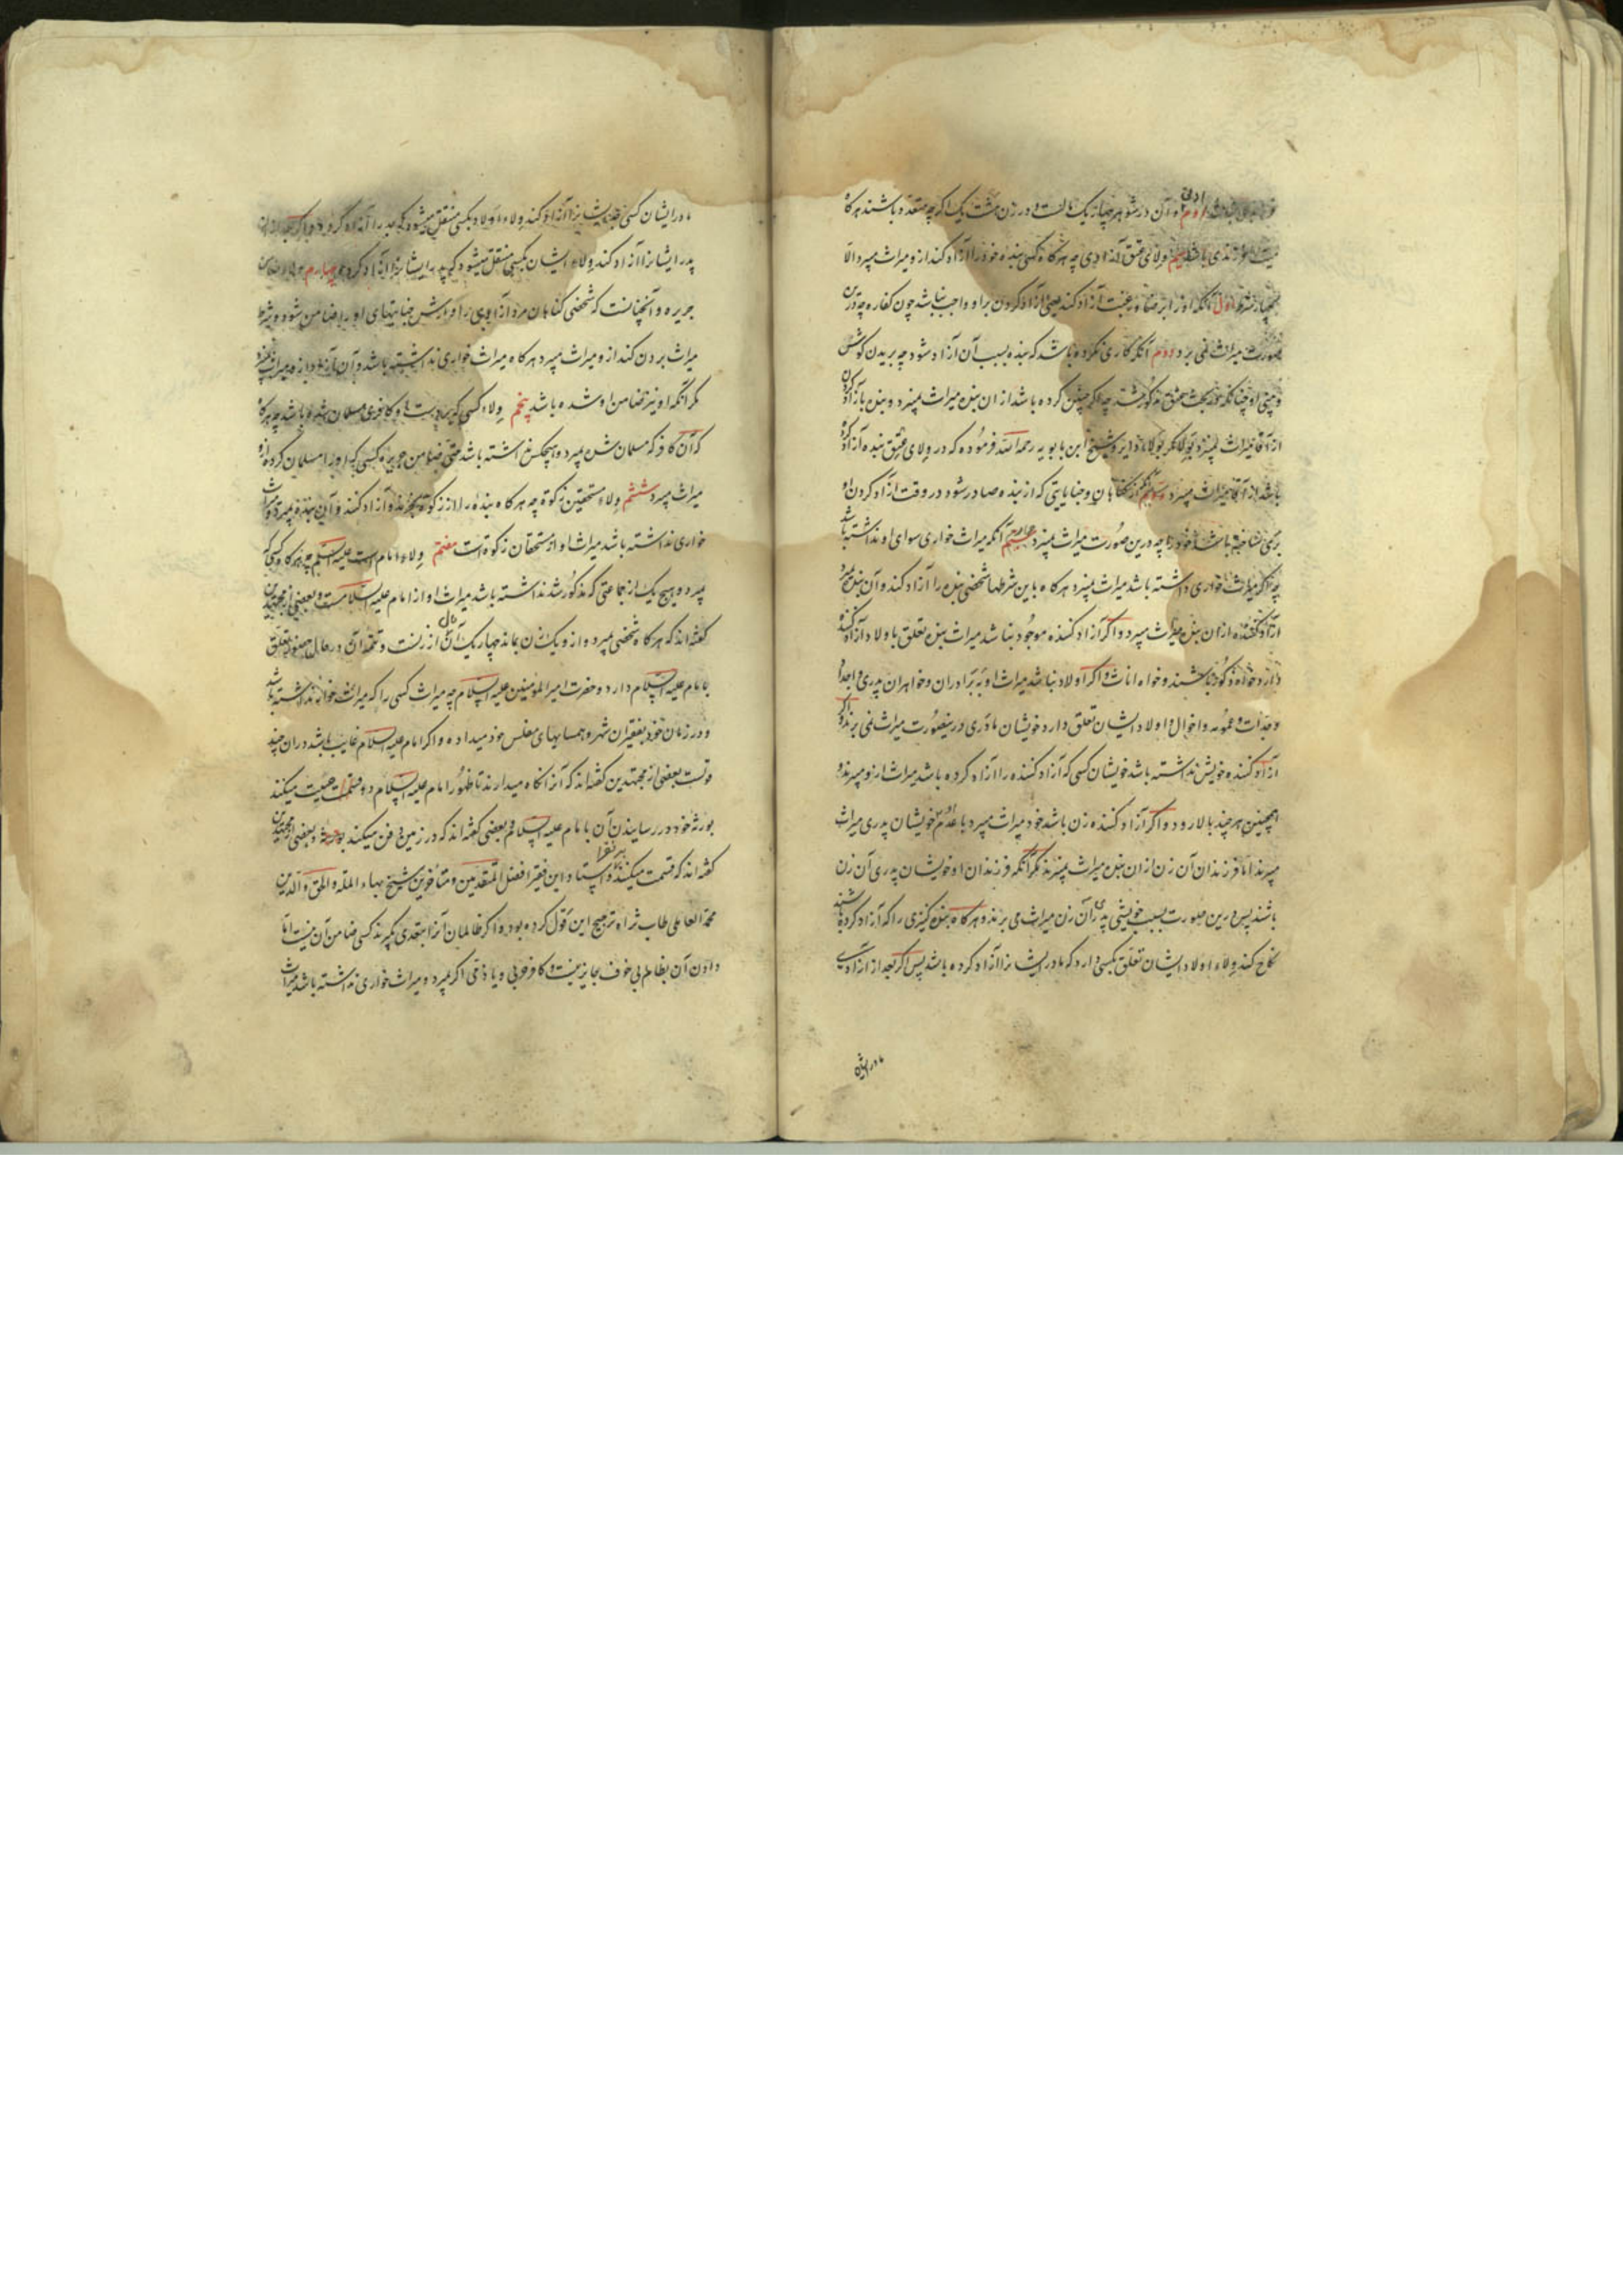 و آن در شوهر چهار یک مالست و در زن هشت یک اگر چه متعدد باشند هر گاه
میت فرزندی باشد سیم ولای عتق آزادی چه هر گاه کسی بنده خود را آزاد کند از و میراث میبرد الا
بچهار شرط اول آنکه او را برضا و رغبت آزاد کند یعنی آزاد کردن بر او واجب نباشد چون کفاره چه درین
صورت میراث نمی برد دوم آنکه کاری نکرده باشد که بنده بسبب آن آزاد شود چه بریدن گوش
و بینی او چنانکه در بحث عتق مذکور شد چه اگر چنین کرده باشد از ان بنده میراث نمیبرد و بنده باز آزاد کردن
از آقا میراث نمیبرد و شیخ ابن بابویه رحمه الله فرموده که در ولای عتق بنده آزاد کرده
باشد از آقا میراث میبرد سیم آنکه از گناهان و جنایاتی که از بنده صادر شود در وقت آزاد کردن او
بری نساخته باشد خود را چه درین صورت میراث نمیبرد چهارم آنکه میراث خواری سوای او نداشته باشد
چه اگر میراث خواری داشته باشد میراث نمیبرد هر گاه باین شرطها شخصی بنده را آزاد کند و آن بنده بمیرد
آزاد کننده از ان بنده میراث میبرد و اگر آزاد کننده موجود نباشد میراث بنده تعلق باولاد آزاد کننده
دارد خواه ذکور باشند و خواه اناث و اگر اولاد نباشد میراث او ببرادران و خواهران پدری و اجداد
و جدات و عمومه و اخوال و اولاد ایشان تعلق دارد خویشان مادری درینصورت میراث نمی برند و اگر
آزاد کننده خویش نداشته باشد خویشان کسی که آزاد کننده را آزاد کرده باشد میراث ازو میبرند و
همچنین هر چند بالا رود و اگر آزاد کننده زن باشد خود میراث میبرد با عدم خویشان پدری میراث
میبرند اما فرزندان آن زن از ان بنده میراث نمیبرند مگر آنکه فرزندان او خویشان پدری آن زن
باشند پس درین صورت بسبب خویشی پدری آن زن میراث می برند و هر گاه بنده کنیزی را که آزاد کرده باشند
نکاح کند ولاء اولاد ایشان تعلق بکسی دارد که مادر ایشانرا آزاد کرده باشد پس اگر بعد از آزادی
مادر ایشان
مادر ایشان کسی جد ایشانرا آزاد کند ولاء اولاد بکسی منتقل میشود که جد را آزاد کرده و اگر بعد از ان
پدر ایشانرا آزاد کند ولاء ایشان بکسی منتقل میشود که پدر ایشانرا آزاد کرده چهارم ولاء ضامن
جریره و آنچنانست که شخصی گناهان مرد آزادی را و ارش جنایتهای او را ضامن شود و شرط
میراث بردن کند از و میراث میبرد هر گاه میراث خواری نداشته باشد و آن آزاد از و میراث نمیبرد
مگر آنکه او نیز ضامن او شده باشد پنجم ولاء کسی که بر دست او کافری مسلمان شده باشد چه هر گاه
که آن کافر که مسلمان شده بمیرد و هیچکس نداشته باشد حتی ضامن جریره کسی که او را مسلمان کرده ازو
میراث میبرد ششم ولاء مستحقین زکوة چه هر گاه بنده را از زر زکوة بخرند و آزاد کنند و آن بنده بمیرد و میراث
خواری نداشته باشد میراث او از مستحقان زکوة است هفتم ولاء امام است علیه السلم چه هر گاه کسی که
بمیرد و هیچ یک از جماعتی که مذکور شد نداشته باشد میراث او از امام علیه السلامست و بعضی از مجتهدین
گفته اند که هر گاه شخصی بمیرد و از و یک زن بماند چهار یک آن مال از زنست و تتمه آن در حال حضور تعلق
بامام علیه السلام دارد و حضرت امیر المؤمنین علیه السلام چه میراث کسی را که میراث خوار نداشته باشد
و در زمان خود بفقیران شهر و همسایهای مفلس خود میداده و اگر امام علیه السلام غایب باشد در ان چند
قولست بعضی از مجتهدین گفته اند که آنرا نگاه میدارند تا ظهور امام علیه السلام و وصیت میکند
بورثه خود در رسانیدن آن بامام علیه السلام و بعضی گفته اند که در زمین دفن میکند و بعضی از مجتهدین
گفته اند که قسمت میکنند بر فقرا و استاد این فقیر افضل المتقدمین و متأخرین شیخ بهاء المله و الحق و الدین
محمد العاملی طاب ثراه ترجیح این قول کرده بوده و اگر ظالمان آنرا بتعدی بگیرند کسی ضامن آن نیست اما
دادن آن بظالم بی خوف جایز نیست و کافر حربی و یا ذمی اگر بمیرد و میراث خواری نداشته باشد میراث